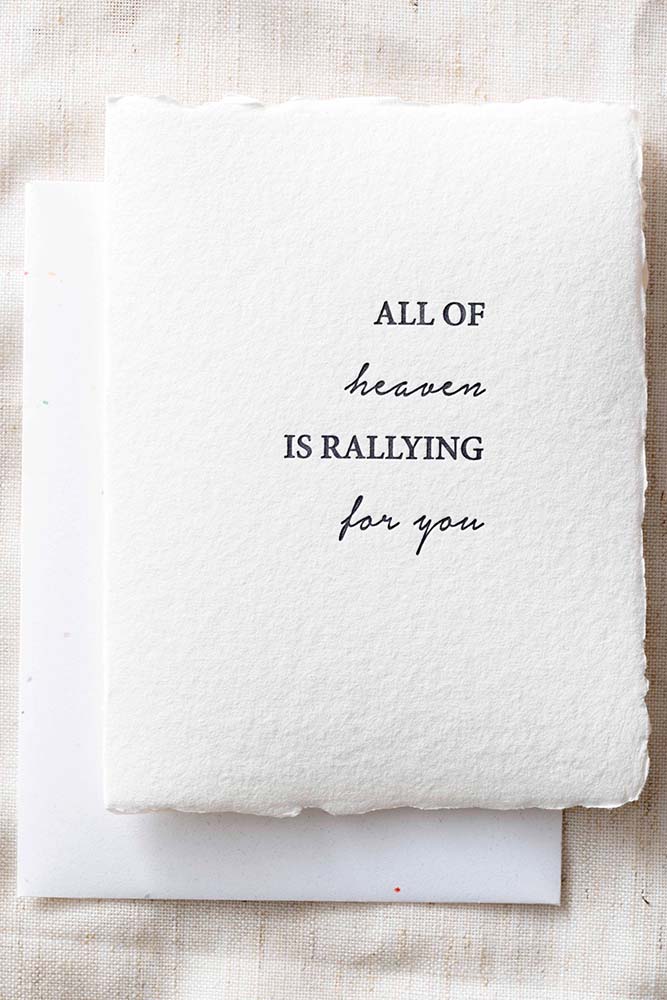 ALL OF
heaven
IS RALLYING
for you